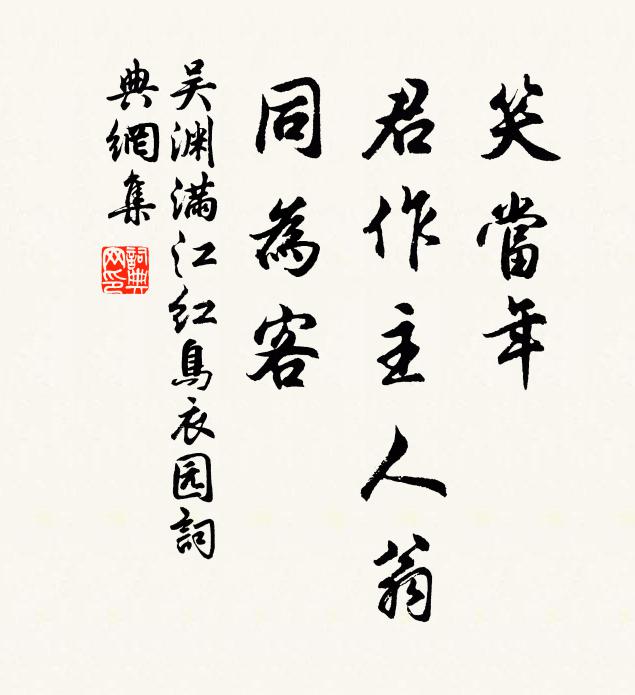 笑當年
君作主人翁
同為客
吴渊满江红烏衣园詞
典網集
詞典
网印